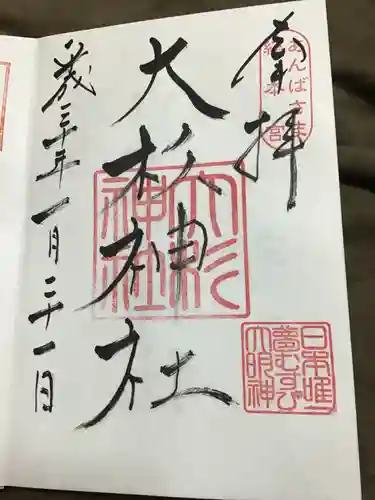 奉拝
あんばさま
総本宮
大杉神社
大杉
神社
平成三十年一月二十一日
日本唯一
夢むすび
大明神